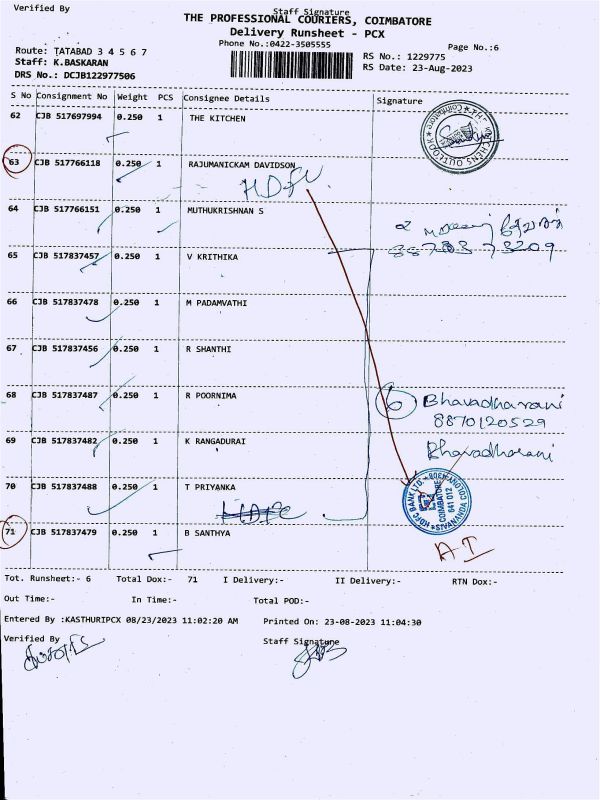 Verified By Staff Signature
THE PROFESSIONAL COURIERS, COIMBATORE
Delivery Runsheet - PCX
Phone No.:0422-3505555
Page No.:6
Route: TATABAD 3 4 5 6 7
Staff: K.BASKARAN
DRS No.: DCJB122977506
RS No.: 1229775
RS Date: 23-Aug-2023
S No Consignment No Weight PCS Consignee Details Signature
62 CJB 517697994 0.250 1 THE KITCHEN
63 CJB 517766118 0.250 1 RAJUMANICKAM DAVIDSON
HDFC
64 CJB 517766151 0.250 1 MUTHUKRISHNAN S
65 CJB 517837457 0.250 1 V KRITHIKA
66 CJB 517837478 0.250 1 M PADAMVATHI
67 CJB 517837456 0.250 1 R SHANTHI
68 CJB 517837487 0.250 1 R POORNIMA
6 Bhavadharani
8870120529
69 CJB 517837482 0.250 1 K RANGADURAI
Bhavadharani
70 CJB 517837488 0.250 1 T PRIYANKA
HDFC
HDFC BANK LTD.
COIMBATORE
641 012
SIVANANDA COLONY
71 CJB 517837479 0.250 1 B SANTHYA
AT
Tot. Runsheet:- 6 Total Dox:- 71 I Delivery:- II Delivery:- RTN Dox:-
Out Time:- In Time:- Total POD:-
Entered By :KASTHURIPCX 08/23/2023 11:02:20 AM Printed On: 23-08-2023 11:04:30
Verified By Staff Signature